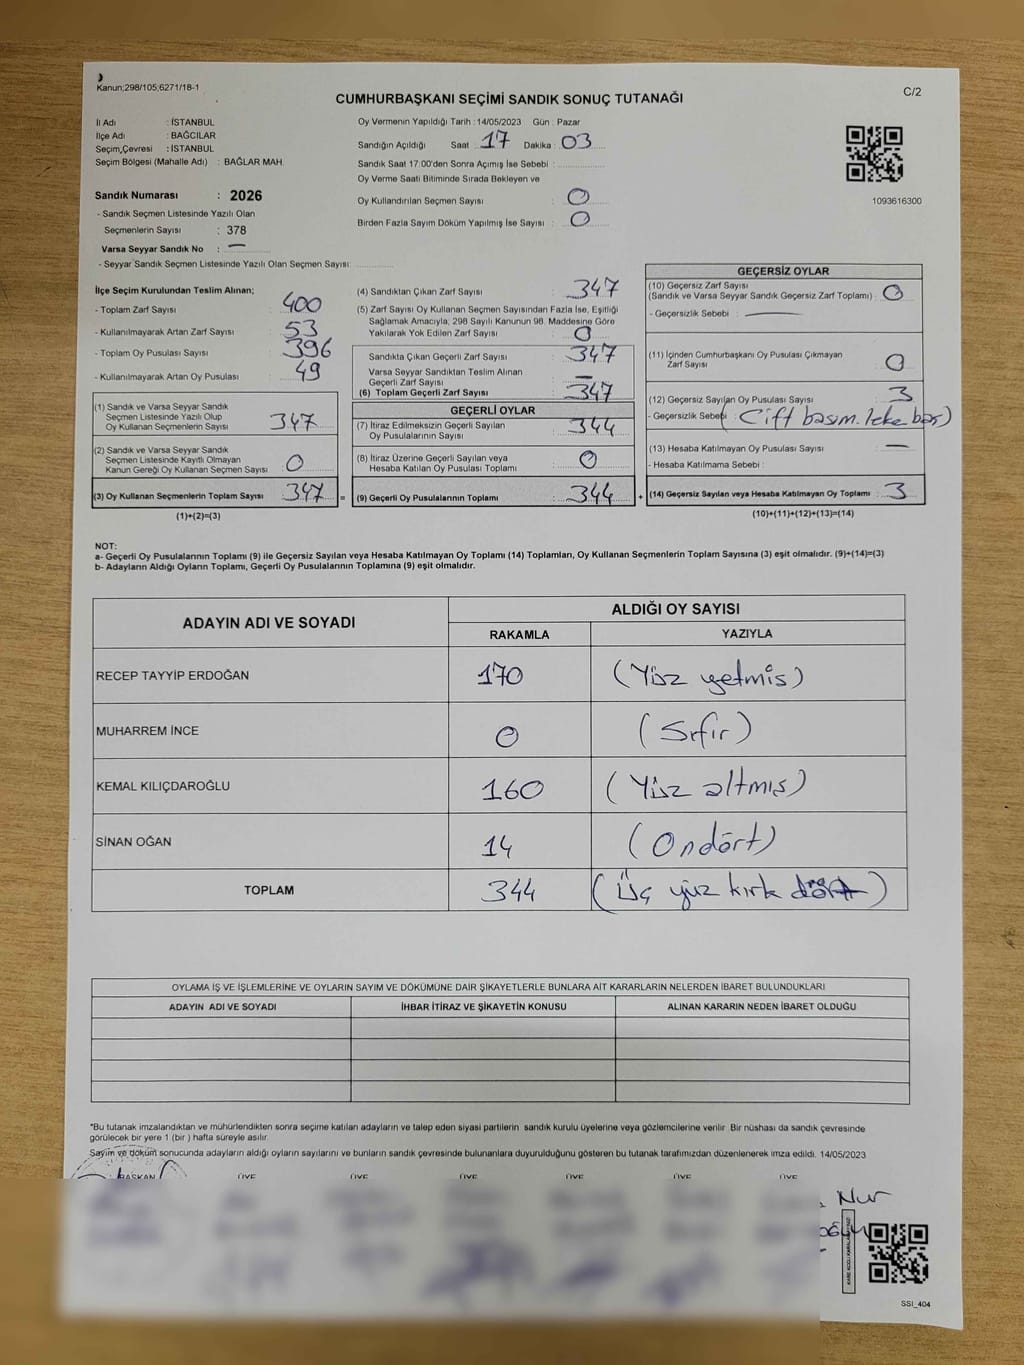 Kanun;298/105;6271/18-1
C/2
CUMHURBAŞKANI SEÇİMİ SANDIK SONUÇ TUTANAĞI
İl Adı : İSTANBUL
İlçe Adı : BAĞCILAR
Seçim Çevresi : İSTANBUL
Seçim Bölgesi (Mahalle Adı) : BAĞLAR MAH.
Oy Vermenin Yapıldığı Tarih : 14/05/2023 Gün : Pazar
Sandığın Açıldığı Saat : 17 Dakika : 03
Sandık Saat 17:00'den Sonra Açımış İse Sebebi :
Oy Verme Saati Bitiminde Sırada Bekleyen ve
Oy Kullandırılan Seçmen Sayısı : 0
Birden Fazla Sayım Döküm Yapılmış İse Sayısı : 0
1093616300
Sandık Numarası : 2026
- Sandık Seçmen Listesinde Yazılı Olan
Seçmenlerin Sayısı : 378
Varsa Seyyar Sandık No : —
- Seyyar Sandık Seçmen Listesinde Yazılı Olan Seçmen Sayısı:
İlçe Seçim Kurulundan Teslim Alınan;
- Toplam Zarf Sayısı : 400
- Kullanılmayarak Artan Zarf Sayısı : 53
- Toplam Oy Pusulası Sayısı : 396
- Kullanılmayarak Artan Oy Pusulası : 49
(1) Sandık ve Varsa Seyyar Sandık
Seçmen Listesinde Yazılı Olup
Oy Kullanan Seçmenlerin Sayısı : 347
(2) Sandık ve Varsa Seyyar Sandık
Seçmen Listesinde Kayıtlı Olmayan
Kanun Gereği Oy Kullanan Seçmen Sayısı : 0
(3) Oy Kullanan Seçmenlerin Toplam Sayısı : 347 =
(1)+(2)=(3)
(4) Sandıktan Çıkan Zarf Sayısı : 347
(5) Zarf Sayısı Oy Kullanan Seçmen Sayısından Fazla İse, Eşitliği
Sağlamak Amacıyla; 298 Sayılı Kanunun 98. Maddesine Göre
Yakılarak Yok Edilen Zarf Sayısı : 0
Sandıkta Çıkan Geçerli Zarf Sayısı : 347
Varsa Seyyar Sandıktan Teslim Alınan
Geçerli Zarf Sayısı : —
(6) Toplam Geçerli Zarf Sayısı : 347
GEÇERLİ OYLAR
(7) İtiraz Edilmeksizin Geçerli Sayılan
Oy Pusulalarının Sayısı : 344
(8) İtiraz Üzerine Geçerli Sayılan veya
Hesaba Katılan Oy Pusulası Toplamı : 0
(9) Geçerli Oy Pusulalarının Toplamı : 344 +
GEÇERSİZ OYLAR
(10) Geçersiz Zarf Sayısı
(Sandık ve Varsa Seyyar Sandık Geçersiz Zarf Toplamı) : 0
- Geçersizlik Sebebi : —
(11) İçinden Cumhurbaşkanı Oy Pusulası Çıkmayan
Zarf Sayısı : 0
(12) Geçersiz Sayılan Oy Pusulası Sayısı : 3
- Geçersizlik Sebebi : (Çift basım. leke bas)
(13) Hesaba Katılmayan Oy Pusulası Sayısı : —
- Hesaba Katılmama Sebebi :
(14) Geçersiz Sayılan veya Hesaba Katılmayan Oy Toplamı : 3
(10)+(11)+(12)+(13)=(14)
NOT:
a- Geçerli Oy Pusulalarının Toplamı (9) ile Geçersiz Sayılan veya Hesaba Katılmayan Oy Toplamı (14) Toplamları, Oy Kullanan Seçmenlerin Toplam Sayısına (3) eşit olmalıdır. (9)+(14)=(3)
b- Adayların Aldığı Oyların Toplamı, Geçerli Oy Pusulalarının Toplamına (9) eşit olmalıdır.
ADAYIN ADI VE SOYADI
ALDIĞI OY SAYISI
RAKAMLA YAZIYLA
RECEP TAYYİP ERDOĞAN 170 (Yüz yetmis)
MUHARREM İNCE 0 (Sıfır)
KEMAL KILIÇDAROĞLU 160 (Yüz altmış)
SİNAN OĞAN 14 (Ondört)
TOPLAM 344 (Üç yüz kırk dört)
OYLAMA İŞ VE İŞLEMLERİNE VE OYLARIN SAYIM VE DÖKÜMÜNE DAİR ŞİKAYETLERLE BUNLARA AİT KARARLARIN NELERDEN İBARET BULUNDUKLARI
ADAYIN ADI VE SOYADI İHBAR İTİRAZ VE ŞİKAYETİN KONUSU ALINAN KARARIN NEDEN İBARET OLDUĞU
*Bu tutanak imzalandıktan ve mühürlendikten sonra seçime katılan adayların ve talep eden siyasi partilerin sandık kurulu üyelerine veya gözlemcilerine verilir. Bir nüshası da sandık çevresinde
görülecek bir yere 1 (bir) hafta süreyle asılır.
Sayım ve döküm sonucunda adayların aldığı oyların sayılarını ve bunların sandık çevresinde bulunanlara duyurulduğunu gösteren bu tutanak tarafımızdan düzenlenerek imza edildi. 14/05/2023
BAŞKAN ÜYE ÜYE ÜYE ÜYE ÜYE ÜYE
Nur
SSI_404